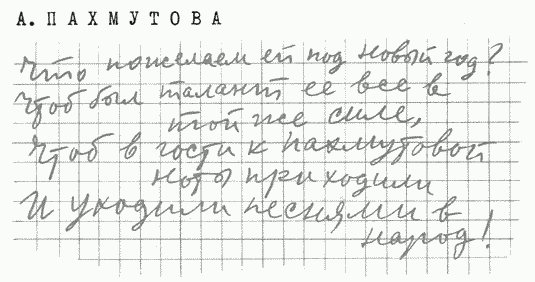 А. ПАХМУТОВА
Что пожелаем ей под новый год?
Чтоб был талант ее все в
той же силе,
Чтоб в гости к пахмутовой
ноты приходили
И уходили песнями в
народ!